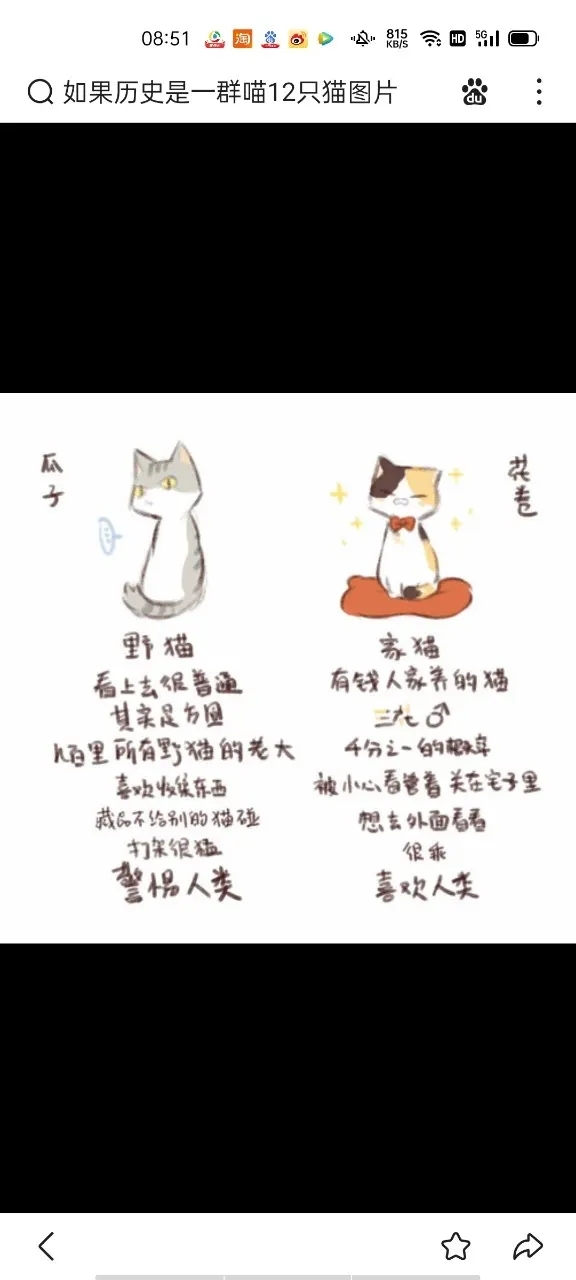 08:51
淘
815
KB/S
HD
5G
如果历史是一群喵12只猫图片
du
瓜子
花卷
野猫
看上去很普通
其实是方圆
几百里所有野猫的老大
喜欢收集东西
藏品不给别的猫碰
打架很猛
警惕人类
家猫
有钱人家养的猫
三花♂
4分之一的概率
被小心看管着 关在宅子里
想去外面看看
很乖
喜欢人类